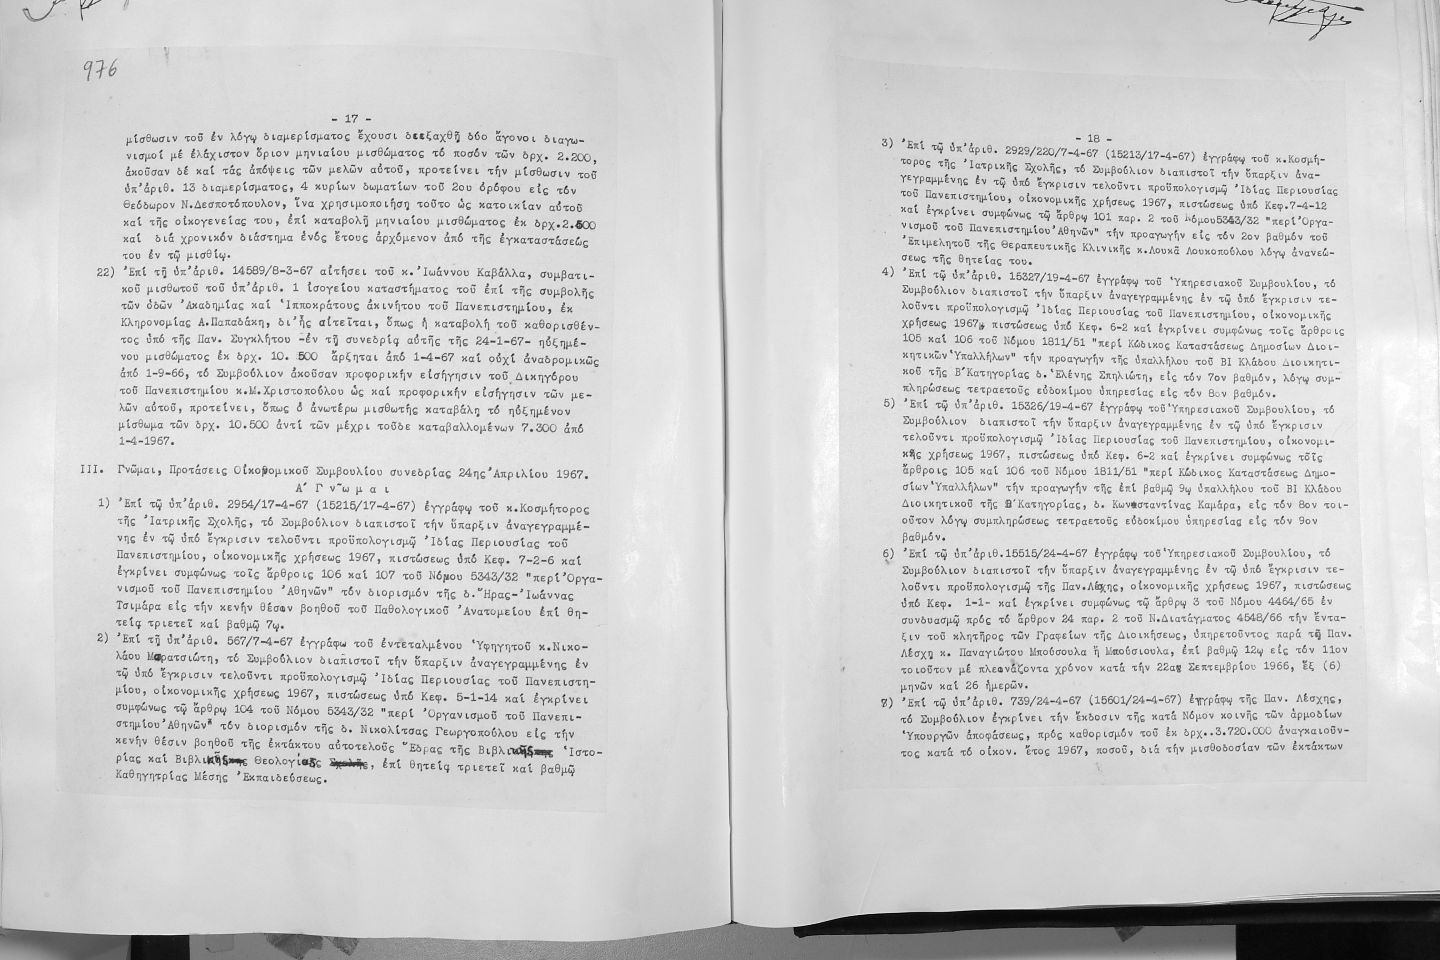 976
- 17 -
μίσθωσιν τοῦ ἐν λόγῳ διαμερίσματος ἔχουσι διεξαχθῆ δύο ἄγονοι διαγω-
νισμοί μέ ἐλάχιστον ὅριον μηνιαίου μισθώματος τό ποσόν τῶν δρχ. 2.200,
ἀκοῦσαν δέ καί τάς ἀπόψεις τῶν μελῶν αὐτοῦ, προτείνει τήν μίσθωσιν τοῦ
ὑπ'ἀριθ. 13 διαμερίσματος, 4 κυρίων δωματίων τοῦ 2ου ὀρόφου εἰς τόν
Θεόδωρον Ν.Δεσποτόπουλον, ἵνα χρησιμοποιήσῃ τοῦτο ὡς κατοικίαν αὐτοῦ
καί τῆς οἰκογενείας του, ἐπί καταβολῇ μηνιαίου μισθώματος ἐκ δρχ.2.500
καί διά χρονικόν διάστημα ἑνός ἔτους ἀρχόμενον ἀπό τῆς ἐγκαταστάσεώς
του ἐν τῷ μισθίῳ.
22) Ἐπί τῇ ὑπ'ἀριθ. 14589/8-3-67 αἰτήσει τοῦ κ.Ἰωάννου Καβάλλα, συμβατι-
κοῦ μισθωτοῦ τοῦ ὑπ'ἀριθ. 1 ἰσογείου καταστήματος τοῦ ἐπί τῆς συμβολῆς
τῶν ὁδῶν Ἀκαδημίας καί Ἱπποκράτους ἀκινήτου τοῦ Πανεπιστημίου, ἐκ
Κληρονομίας Α.Παπαδάκη, δι'ἧς αἰτεῖται, ὅπως ἡ καταβολή τοῦ καθορισθέν-
τος ὑπό τῆς Παν. Συγκλήτου -ἐν τῇ συνεδρίᾳ αὐτῆς τῆς 24-1-67- ηὐξημέ-
νου μισθώματος ἐκ δρχ. 10. 500 ἄρξηται ἀπό 1-4-67 καί οὐχί ἀναδρομικῶς
ἀπό 1-9-66, τό Συμβούλιον ἀκοῦσαν προφορικήν εἰσήγησιν τοῦ Δικηγόρου
τοῦ Πανεπιστημίου κ.Μ.Χριστοπούλου ὡς καί προφορικήν εἰσήγησιν τῶν με-
λῶν αὐτοῦ, προτείνει, ὅπως ὁ ἀνωτέρω μισθωτής καταβάλῃ τό ηὐξημένον
μίσθωμα τῶν δρχ. 10.500 ἀντί τῶν μέχρι τοῦδε καταβαλλομένων 7.300 ἀπό
1-4-1967.
III. Γνῶμαι, Προτάσεις Οἰκονομικοῦ Συμβουλίου συνεδρίας 24ης Ἀπριλίου 1967.
Α΄ Γ ν ῶ μ α ι
1) Ἐπί τῷ ὑπ'ἀριθ. 2954/17-4-67 (15215/17-4-67) ἐγγράφῳ τοῦ κ.Κοσμήτορος
τῆς Ἰατρικῆς Σχολῆς, τό Συμβούλιον διαπιστοῖ τήν ὕπαρξιν ἀναγεγραμμέ-
νης ἐν τῷ ὑπό ἔγκρισιν τελοῦντι προϋπολογισμῷ Ἰδίας Περιουσίας τοῦ
Πανεπιστημίου, οἰκονομικῆς χρήσεως 1967, πιστώσεως ὑπό Κεφ. 7-2-6 καί
ἐγκρίνει συμφώνως τοῖς ἄρθροις 106 καί 107 τοῦ Νόμου 5343/32 "περί Ὀργα-
νισμοῦ τοῦ Πανεπιστημίου Ἀθηνῶν" τόν διορισμόν τῆς δ. Ἥρας-Ἰωάννας
Τσιμάρα εἰς τήν κενήν θέσιν βοηθοῦ τοῦ Παθολογικοῦ Ἀνατομείου ἐπί θη-
τείᾳ τριετεῖ καί βαθμῷ 7ῳ.
2) Ἐπί τῇ ὑπ'ἀριθ. 567/7-4-67 ἐγγράφω τοῦ ἐντεταλμένου Ὑφηγητοῦ κ.Νικο-
λάου Μορατσιώτη, τό Συμβούλιον διαπιστοῖ τήν ὕπαρξιν ἀναγεγραμμένης ἐν
τῷ ὑπό ἔγκρισιν τελοῦντι προϋπολογισμῷ Ἰδίας Περιουσίας τοῦ Πανεπιστη-
μίου, οἰκονομικῆς χρήσεως 1967, πιστώσεως ὑπό Κεφ. 5-1-14 καί ἐγκρίνει
συμφώνως τῷ ἄρθρῳ 104 τοῦ Νόμου 5343/32 "περί Ὀργανισμοῦ τοῦ Πανεπι-
στημίου Ἀθηνῶν" τόν διορισμόν τῆς δ. Νικολίτσας Γεωργοπούλου εἰς τήν
κενήν θέσιν βοηθοῦ τῆς ἐκτάκτου αὐτοτελοῦς Ἕδρας τῆς Βιβλικῆς Ἱστο-
ρίας καί Βιβλικῆς Θεολογίας , ἐπί θητείᾳ τριετεῖ καί βαθμῷ
Καθηγητρίας Μέσης Ἐκπαιδεύσεως.
- 18 -
3) Ἐπί τῷ ὑπ'ἀριθ. 2929/220/7-4-67 (15213/17-4-67) ἐγγράφῳ τοῦ κ.Κοσμή-
τορος τῆς Ἰατρικῆς Σχολῆς, τό Συμβούλιον διαπιστοῖ τήν ὕπαρξιν ἀνα-
γεγραμμένης ἐν τῷ ὑπό ἔγκρισιν τελοῦντι προϋπολογισμῷ Ἰδίας Περιουσίας
τοῦ Πανεπιστημίου, οἰκονομικῆς χρήσεως 1967, πιστώσεως ὑπό Κεφ.7-4-12
καί ἐγκρίνει συμφώνως τῷ ἄρθρῳ 101 παρ. 2 τοῦ Νόμου5343/32 "περί Ὀργα-
νισμοῦ τοῦ Πανεπιστημίου Ἀθηνῶν" τήν προαγωγήν εἰς τόν 2ον βαθμόν τοῦ
Ἐπιμελητοῦ τῆς Θεραπευτικῆς Κλινικῆς κ.Λουκᾶ Λουκοπούλου λόγῳ ἀνανεώ-
σεως τῆς θητείας του.
4) Ἐπί τῷ ὑπ'ἀριθ. 15327/19-4-67 ἐγγράφῳ τοῦ Ὑπηρεσιακοῦ Συμβουλίου, τό
Συμβούλιον διαπιστοῖ τήν ὕπαρξιν ἀναγεγραμμένης ἐν τῷ ὑπό ἔγκρισιν τε-
λοῦντι προϋπολογισμῷ Ἰδίας Περιουσίας τοῦ Πανεπιστημίου, οἰκονομικῆς
χρήσεως 1967, πιστώσεως ὑπό Κεφ. 6-2 καί ἐγκρίνει συμφώνως τοῖς ἄρθροις
105 καί 106 τοῦ Νόμου 1811/51 "περί Κώδικος Καταστάσεως Δημοσίων Διοι-
κητικῶν Ὑπαλλήλων" τήν προαγωγήν τῆς ὑπαλλήλου τοῦ ΒΙ Κλάδου Διοικητι-
κοῦ τῆς Β΄Κατηγορίας δ.Ἑλένης Σπηλιώτη, εἰς τόν 7ον βαθμόν, λόγῳ συμ-
πληρώσεως τετραετοῦς εὐδοκίμου ὑπηρεσίας εἰς τόν 8ον βαθμόν.
5) Ἐπί τῷ ὑπ'ἀριθ. 15326/19-4-67 ἐγγράφῳ τοῦ Ὑπηρεσιακοῦ Συμβουλίου, τό
Συμβούλιον διαπιστοῖ τήν ὕπαρξιν ἀναγεγραμμένης ἐν τῷ ὑπό ἔγκρισιν
τελοῦντι προϋπολογισμῷ Ἰδίας Περιουσίας τοῦ Πανεπιστημίου, οἰκονομι-
κῆς χρήσεως 1967, πιστώσεως ὑπό Κεφ. 6-2 καί ἐγκρίνει συμφώνως τοῖς
ἄρθροις 105 καί 106 τοῦ Νόμου 1811/51 "περί Κώδικος Καταστάσεως Δημο-
σίων Ὑπαλλήλων" τήν προαγωγήν τῆς ἐπί βαθμῷ 9ῳ ὑπαλλήλου τοῦ ΒΙ Κλάδου
Διοικητικοῦ τῆς Β΄Κατηγορίας, δ. Κωνσταντίνας Καμάρα, εἰς τόν 8ον τοι-
οῦτον λόγῳ συμπληρώσεως τετραετοῦς εὐδοκίμου ὑπηρεσίας εἰς τόν 9ον
βαθμόν.
6) Ἐπί τῷ ὑπ'ἀριθ.15515/24-4-67 ἐγγράφῳ τοῦ Ὑπηρεσιακοῦ Συμβουλίου, τό
Συμβούλιον διαπιστοῖ τήν ὕπαρξιν ἀναγεγραμμένης ἐν τῷ ὑπό ἔγκρισιν τε-
λοῦντι προϋπολογισμῷ τῆς Παν.Λέσχης, οἰκονομικῆς χρήσεως 1967, πιστώσεως
ὑπό Κεφ. 1-1- καί ἐγκρίνει συμφώνως τῷ ἄρθρῳ 3 τοῦ Νόμου 4464/65 ἐν
συνδυασμῷ πρός τό ἄρθρον 24 παρ. 2 τοῦ Ν.Διατάγματος 4548/66 τήν ἔντα-
ξιν τοῦ κλητῆρος τῶν Γραφείων τῆς Διοικήσεως, ὑπηρετοῦντος παρά τῇ Παν.
Λέσχῃ κ. Παναγιώτου Μπούσουλα ἤ Μπούσιουλα, ἐπί βαθμῷ 12ῳ εἰς τόν 11ον
τοιοῦτον μέ πλεονάζοντα χρόνον κατά τήν 22αν Σεπτεμβρίου 1966, ἕξ (6)
μηνῶν καί 26 ἡμερῶν.
7) Ἐπί τῷ ὑπ'ἀριθ. 739/24-4-67 (15601/24-4-67) ἐγγράφῳ τῆς Παν. Λέσχης,
τό Συμβούλιον ἐγκρίνει τήν ἔκδοσιν τῆς κατά Νόμον κοινῆς τῶν ἁρμοδίων
Ὑπουργῶν ἀποφάσεως, πρός καθορισμόν τοῦ ἐκ δρχ..3.720.000 ἀναγκαιοῦν-
τος κατά τό οἰκον. ἔτος 1967, ποσοῦ, διά τήν μισθοδοσίαν τῶν ἐκτάκτων